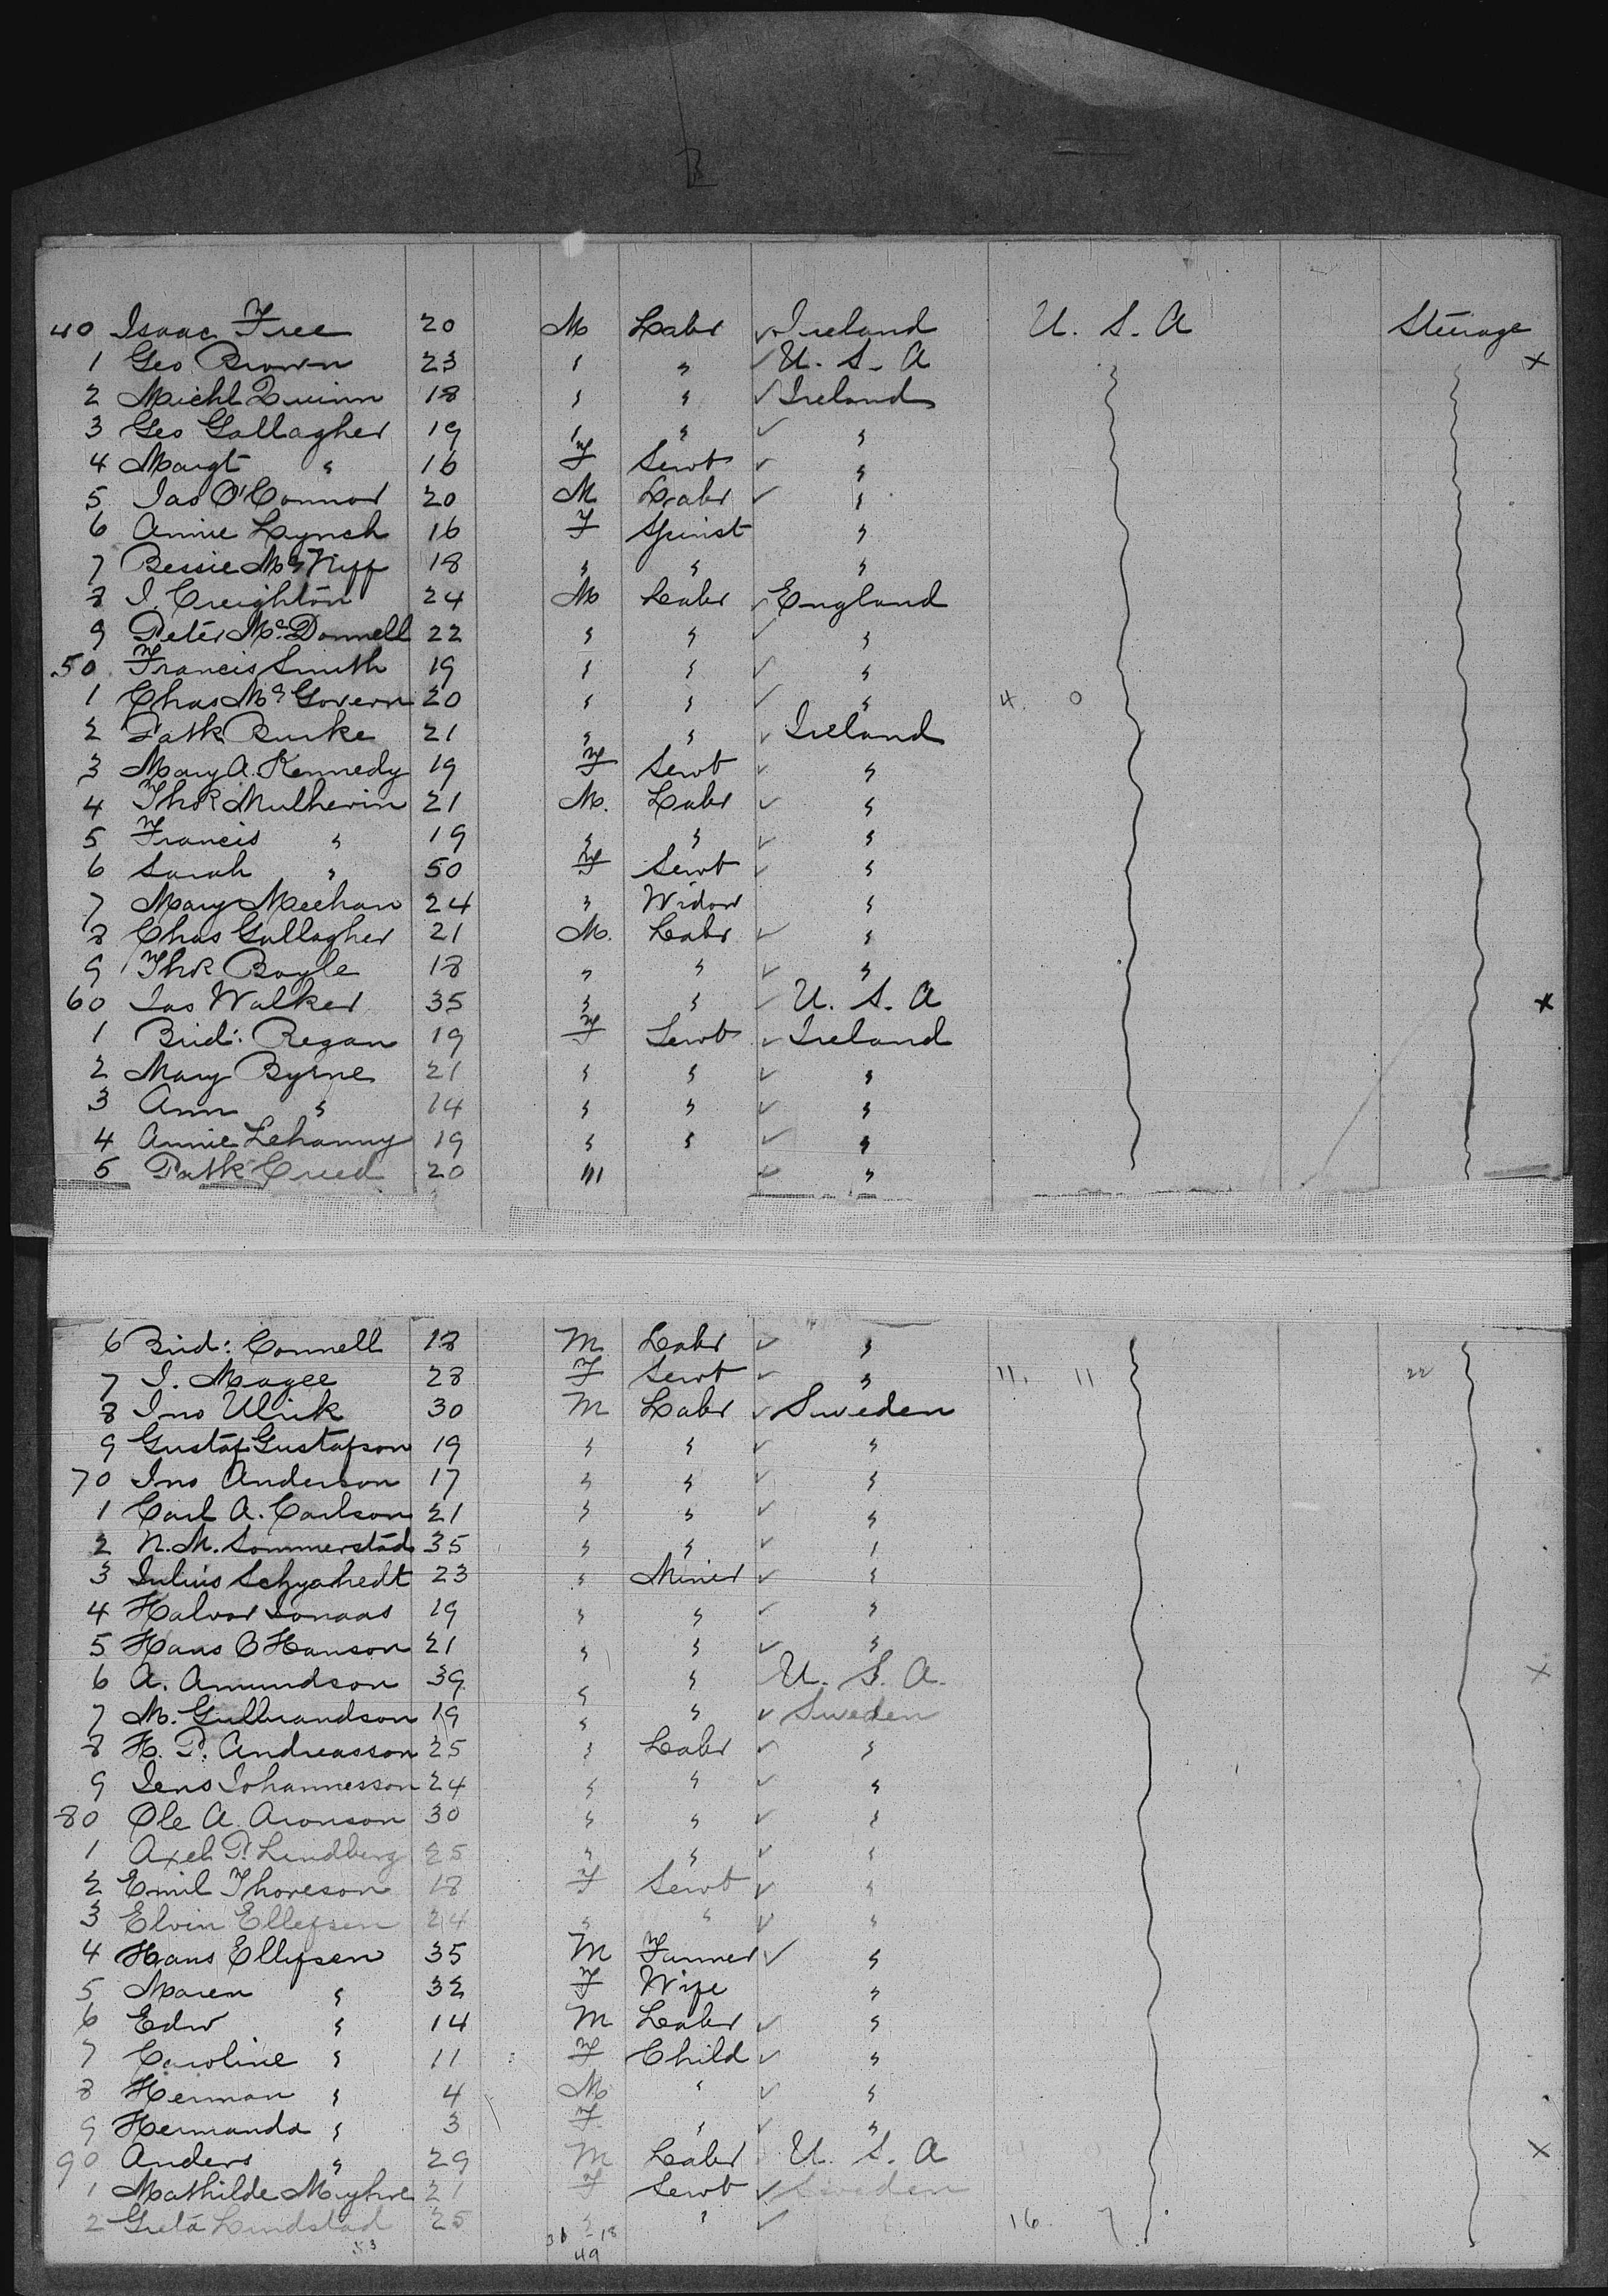 B
40 Isaac Free 20 M Labr ✓ Ireland U. S. A Steerage
1 Geo Brown 23 " " ✓ U. S. A x
2 Michl Quinn 18 " " ✓ Ireland
3 Geo Gallagher 19 " " ✓ "
4 Margt " 16 F Servt ✓ "
5 Jas O'Connor 20 M Labr ✓ "
6 Annie Lynch 16 F Spinst "
7 Bessie McNiff 18 " " "
8 J. Creighton 24 M Labr ✓ England
9 Peter McDonnell 22 " " ✓ "
50 Francis Smith 19 " " ✓ "
1 Chas McGovern 20 " " ✓ " 4. 0
2 Patk Burke 21 " " ✓ Ireland
3 Mary A. Kennedy 19 F Servt ✓ "
4 Thos Mulherin 21 M. Labr ✓ "
5 Francis " 19 " " ✓ "
6 Sarah " 50 F Servt ✓ "
7 Mary Meehan 24 " Widow "
8 Chas Gallagher 21 M. Labr ✓ "
9 Thos Boyle 18 " " ✓ "
60 Jas Walker 35 " " ✓ U. S. A x
1 Brid: Regan 19 F Servt ✓ Ireland
2 Mary Byrne 21 " " ✓ "
3 Ann " 14 " " ✓ "
4 Annie Lehanny 19 " " ✓ "
5 Patk Creed 20 M ✓ "
6 Brid: Connell 18 M Labr ✓ "
7 J. Magee 28 F Servt ✓ " 11. 11 22
8 Jno Ulrik 30 M Labr ✓ Sweden
9 Gustaf Gustafson 19 " " ✓ "
70 Jno Anderson 17 " " ✓ "
1 Carl A. Carlson 21 " " ✓ "
2 N. M. Sommerstad 35 " " ✓ "
3 Julius 23 " Miner ✓ "
4 Halvor Jonaas 19 " " ✓ "
5 Hans O Hanson 21 " " ✓ "
6 A. Amundson 39 " " U. S. A. x
7 M. Gulbrandson 19 " " ✓ Sweden
8 H. P. Andreasson 25 " Labr ✓ "
9 Jens Johannesson 24 " " ✓ "
80 Ole A. Aronson 30 " " ✓ "
1 Axel P. Lindberg 25 " " ✓ "
2 Emil Thoreson 18 F Servt ✓ "
3 Elvin Ellefsen 24 " " ✓ "
4 Hans Ellefsen 35 M Farmer ✓ "
5 Maren " 32 F Wife "
6 Edw " 14 M Labr ✓ "
7 Caroline " 11 F Child ✓ "
8 Herman " 4 M " ✓ "
9 Hermanda " 3 F " ✓ "
90 Anders " 29 M Labr U. S. A x
1 Mathilde Myhre 21 F Servt ✓ Sweden
2 Greta Lindstad 25 " " ✓ 16. 7
53 31 18
49